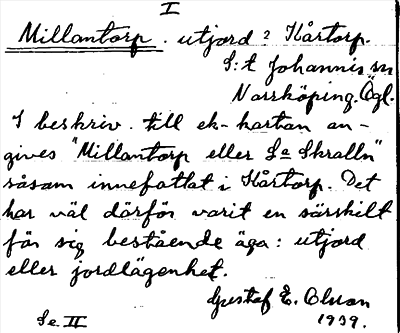 I
Millantorp. utjord? Kårtorp.
S:t Johannis sn
Norrköping. Ögl.
I beskriv. till ek-kartan an-
gives "Millantorp eller Sa Skralln"
såsom innefattat i Kårtorp. Det
har väl därför varit en särskilt
för sig bestående äga: utjord
eller jordlägenhet.
Gustaf E. Olson
Se. II 1939.